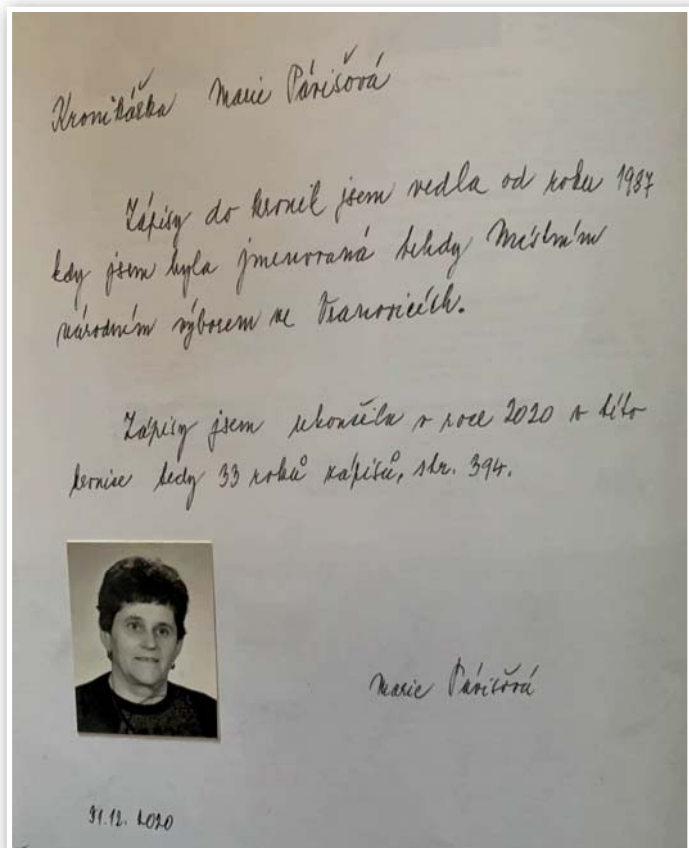 Kronikářka Marie Párišová
Zápisy do kronik jsem vedla od roku 1987
kdy jsem byla jmenovaná tehdy Místním
národním výborem ve Vranovicích.
Zápisy jsem ukončila v roce 2020 v této
kronice tedy 33 roků zápisů, str. 394.
Marie Párišová
31.12. 2020